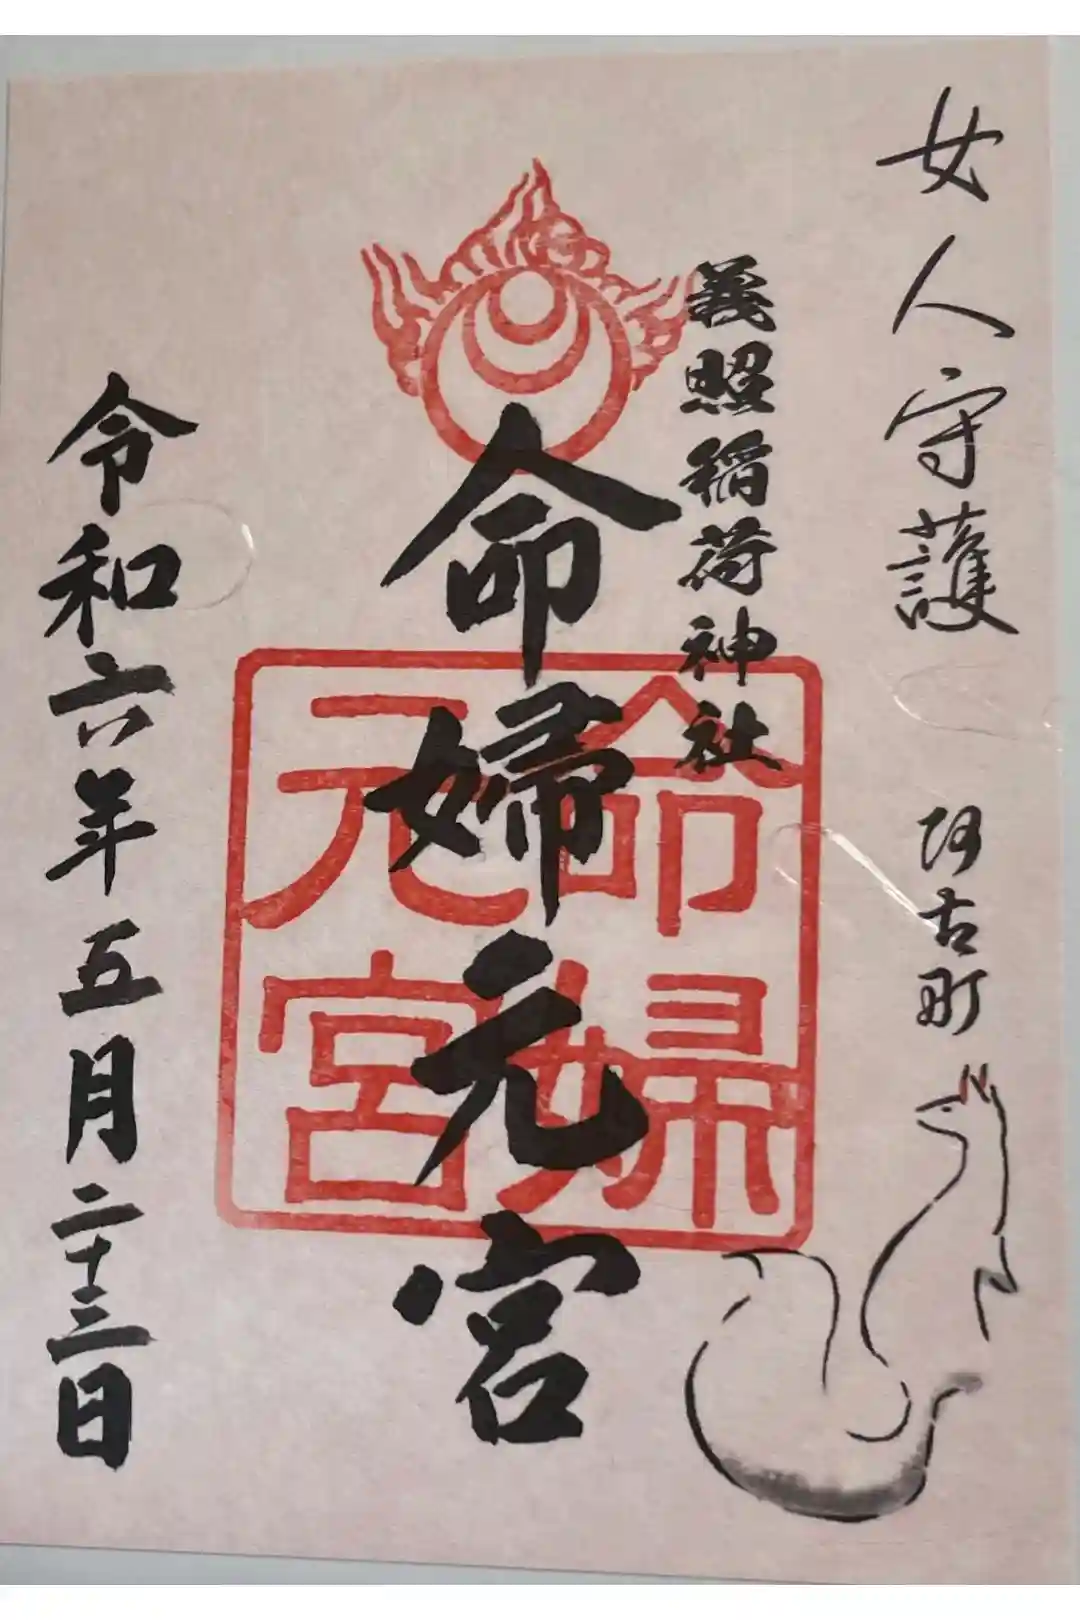 女人守護
阿古町
義照稲荷神社
命婦元宮
命婦
元宮
令和六年五月二十三日